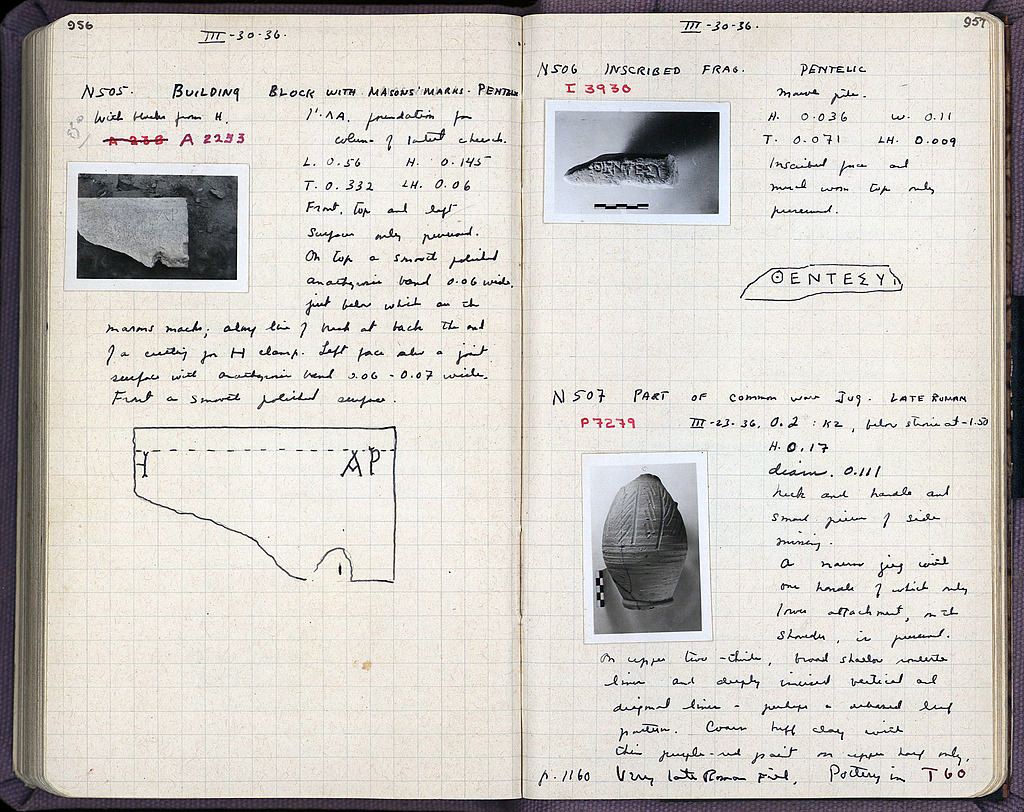 956
III-30-36.
N505. BUILDING BLOCK WITH MASONS' MARKS. PENTELIC
With blocks from H.
A 2253
foundation for
column of latest church.
L. 0.56 H. 0.145
T. 0.332 LH. 0.06
Front, top and left
surfaces only preserved.
On top a smooth polished
anathyrosis band 0.06 wide,
just below which are the
masons marks; along line of break at back the end
of a cutting for H clamp. Left face also a joint
surface with anathyrosis band 0.06 - 0.07 wide.
Front a smooth polished surface.
H AP
957
III-30-36.
N506 INSCRIBED FRAG. PENTELIC
I 3930
Marble pile.
H. 0.036 W. 0.11
T. 0.071 LH. 0.009
Inscribed face and
much worn top only
preserved.
ΘΕΝΤΕΣΥ
ΘΕΝΤΕΣΥ
N507 PART OF COMMON WARE JUG. LATE ROMAN
P7279 III-23-36, 0.2 : K2, below strosis at -1.50
H. 0.17
diam. 0.111
Neck and handle and
small pieces of side
missing.
A narrow jug with
one handle of which only
lower attachment, on the
shoulder, is preserved.
On upper two-thirds, broad shallow
lines and deeply incised vertical and
diagonal lines - perhaps a debased leaf
pattern. Coarse buff clay with
thin purple-red paint on upper half only.
p. 1160 Very late Roman Fill. Pottery in T60